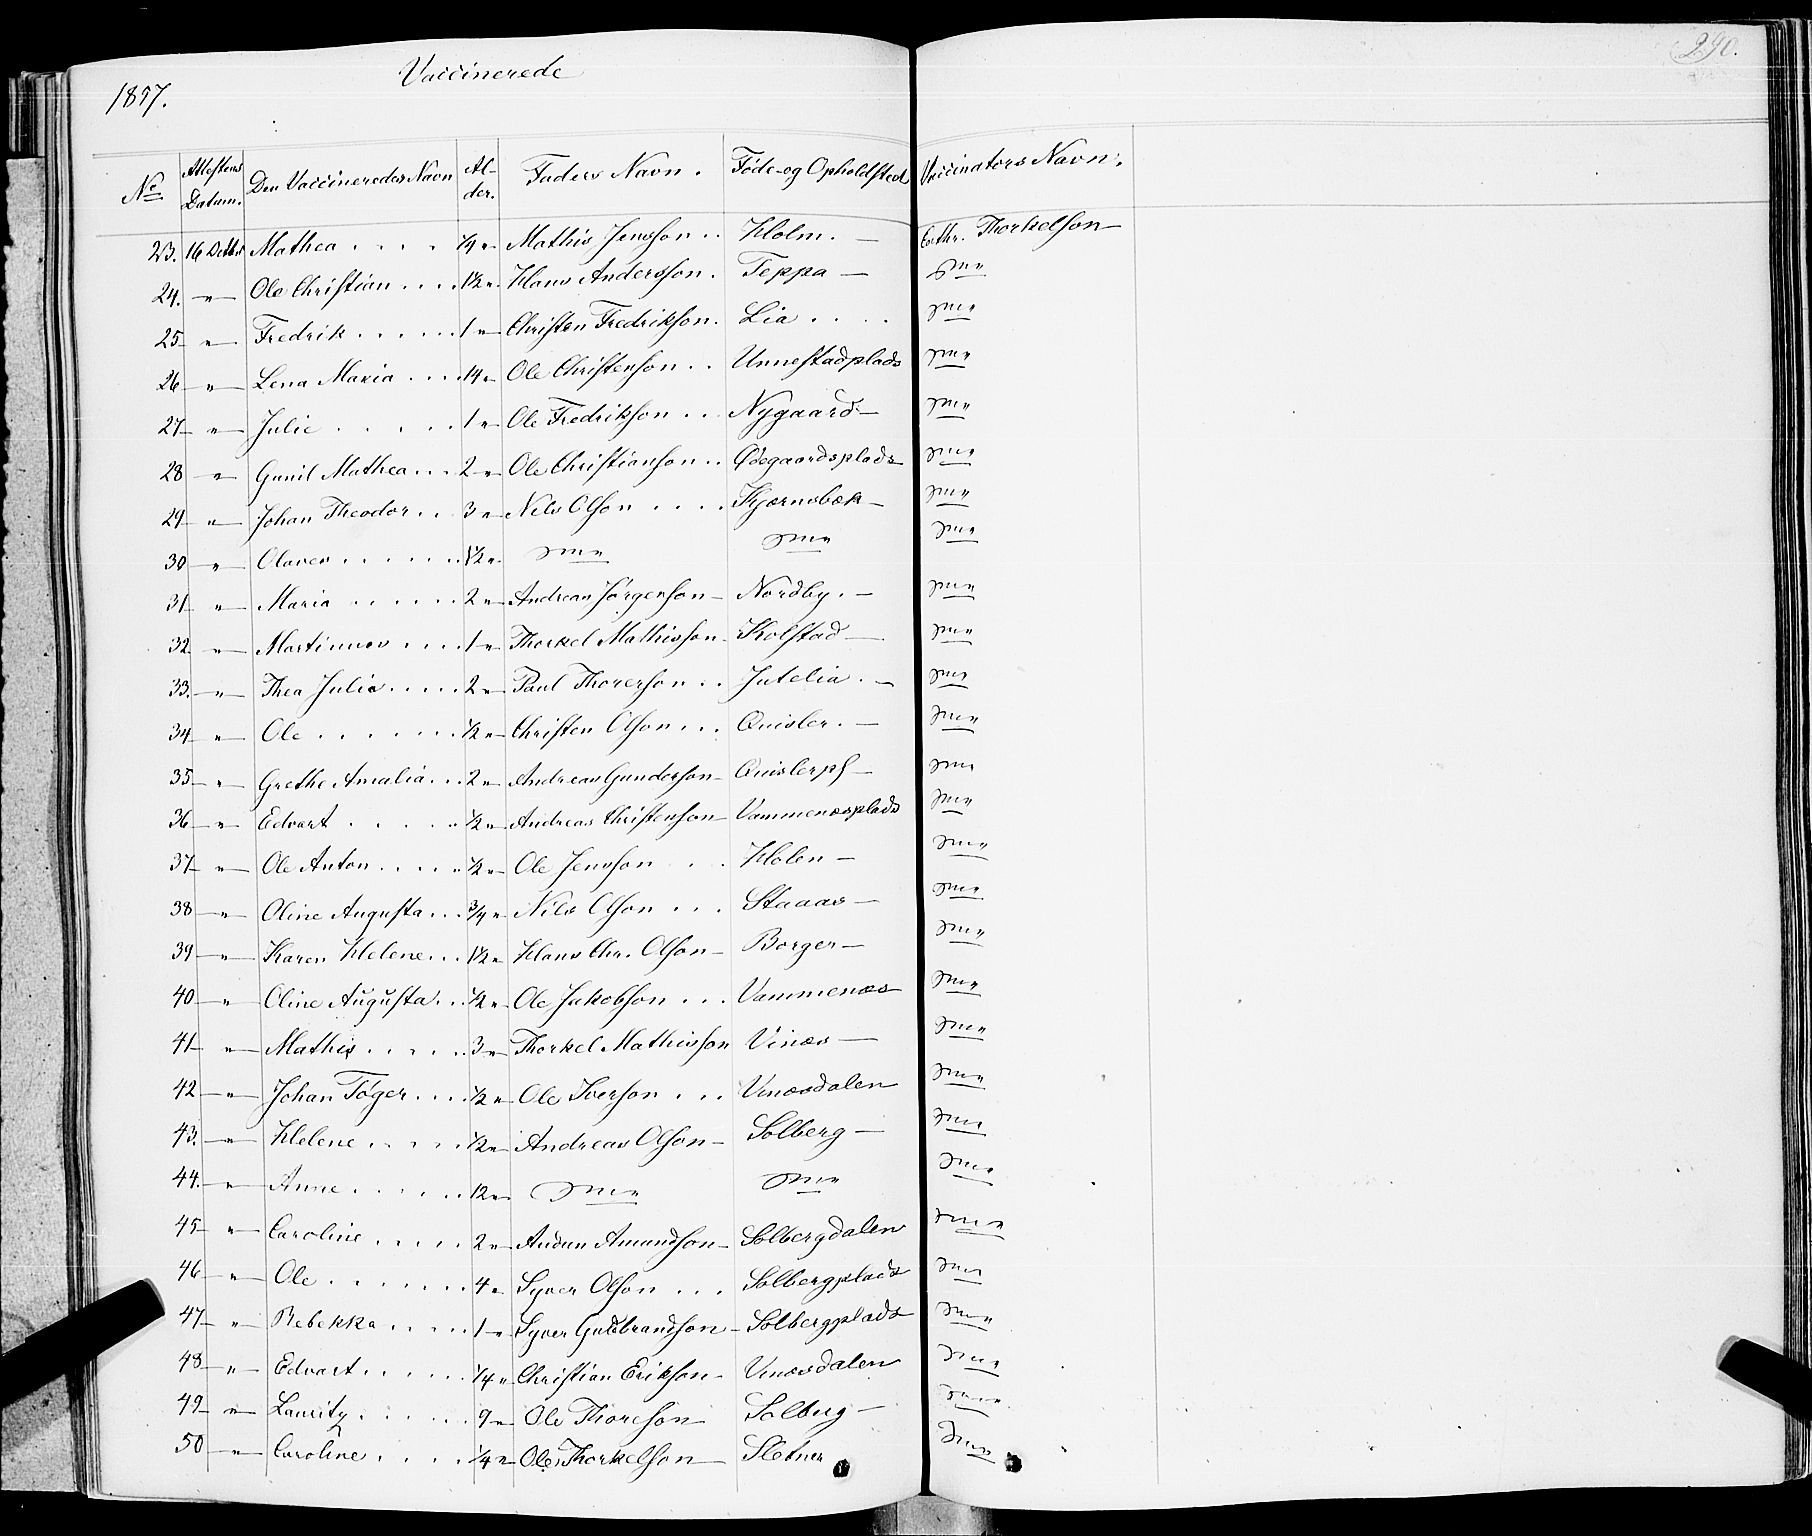 Vaccinerede
290.
1857.
No Attestens Datum. Den Vaccineredes Navn Al-der. Faders Navn. Føde-og Opholdsted Vaccinators Navn.
23. 16 Octbr Mathea . . . . 1/4 " Mathis Jensson . . Holm. — Cathr. Thorkelson
24. " Ole Christian . . . . 1½ " Hans Andersson . Teppa — Sme
25 " Fredrik . . . . . . 1 " Christen Fredrikson. Lia . . . . Sme
26 " Lena Maria . . . . 1/4 " Ole Christenson . . Unnestadplads Sme
27 " Julie . . . . . . 1 " Ole Fredrikson . . . Nygaard — Sme
28 " Gunil Mathea . . . 2 " Ole Christianson . . Ødegaardsplads Sme
29 " Johan Theodor . . 3 " Nils Olson . . . . Kjernsbæk — Sme
30 " Olaves . . . . . . 1½ " Sme Sme Sme
31 " Maria . . . . . . 2 " Andreas Jørgenson — Nordby. — Sme
32 " Martinus . . . . 1 " Thorkel Mathisson — Kolstad — Sme
33. " Thea Julia . . . . . 2 " Paul Thorerson . . Jutelia . — Sme
34 " Ole . . . . . . . ½ " Christen Olson . . . Quisler. — Sme
35 " Grethe Amalia . . . 2 " Andreas Gunderson — Quislerpl — Sme
36 " Edvart . . . . . . ½ " Andreas Christenson — Vammenæsplads Sme
37 " Ole Anton . . . . . ½ " Ole Jensson . . . Holen — Sme
38 " Oline Augusta . . . 3/4 " Nils Olson . . . Staaas — Sme
39 " Karen Helene . . . 1½ " Hans Chr. Olson — Borger — Sme
40 " Oline Augusta . . . ½ " Ole Jakobson . . . Vammenæs Sme
41 " Mathis . . . . . . 3 " Thorkel Mathisson Vinæs — Sme
42 " Johan Tøger . . . . ½ " Ole Iverson . . . Vinæsdalen Sme
43. " Helene . . . . . ½ " Andreas Olson — Solberg — Sme
44. " Anne . . . . . . 12 " Sme Sme Sme
45 " Caroline . . . . . 2 " Audun Amundson — Solbergdalen Sme
46 " Ole . . . . . . . 4 " Syver Olson . . . Solbergplads Sme
47 " Rebekka . . . . . 1 " Syver Guldbrandson — Solbergplads Sme
48 " Edvart . . . . . . 1/4 " Christian Erikson — Vinæsdalen Sme
49 " Lauritz . . . . . . 9 " Ole Thoreson Solberg — Sme
50 " Caroline . . . . . 1/4 " Ole Thorkelson Sletner Sme